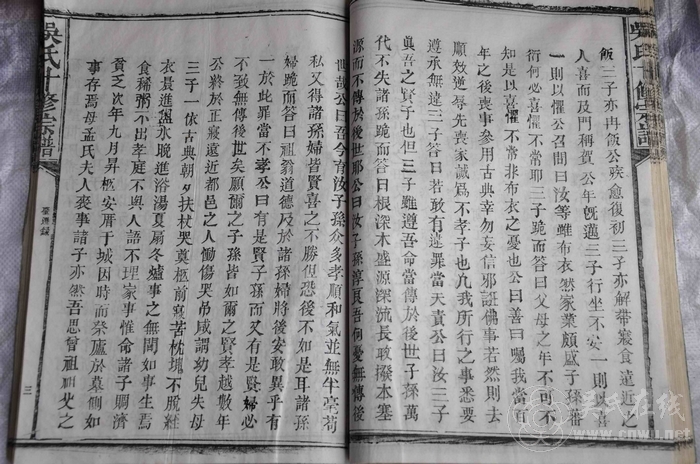 飯三子亦冉飯公疾愈復初三子亦解帶寢食遠近之
人喜而及門稱賀公年旣邁三子行坐不安一則以喜
一則以懼公召問曰汝等雖布衣然家業頗盛子孫蕃
衍何必喜懼不常耶三子跪而答曰父母之年不可不
知是以喜懼不常非布衣之憂也公曰善曰囑我當百
年之後喪事參用古典幸勿妄信邪誑佛事若然則去
順效逆辱先喪家誠爲不孝子也凡我所行之事悉要
遵承無違三子跪而答曰若敢有違罪當天責公曰汝三子
眞吾之賢子也但三子難遵吾命當傳於後世子孫萬
代不失諸孫跪而答曰根深木盛源深流長敢撥本塞
源而不傳於後世耶公曰子孫淳良吾何憂無傳後
世哉公曰吾今育汝子孫众多孝順和氣並無半毫苟
私又得諸孫婦皆賢喜之不勝但恐後不如是耳諸孫
婦跪而答曰祖翁道德及於諸孫婦將後安敢異乎有
一於此罪當不孝公曰有是賢子孫而又有是賢婦必
不致無傳後世矣願爾之子孫皆如爾之賢孝越數年
公終於正寢遠近都邑之人慟傷哭吊咸謂幼兒失母
三子一依古典朝夕扶杖哭奠柩前寢苫枕塊不脫絰
衣晨進盥水晚進浴湯夏扇冬爐事之無間如事生焉
食稀粥不出孝庭不與人語不理家事惟命諸子賙濟
貧乏次年九月昇柩安厝于城因時而祭廬於墓側如
事存焉母孟氏夫人喪事諸子亦然吾思曾祖祖父之
吳氏十修宗譜
三
吳氏在线
www.cnwu.net